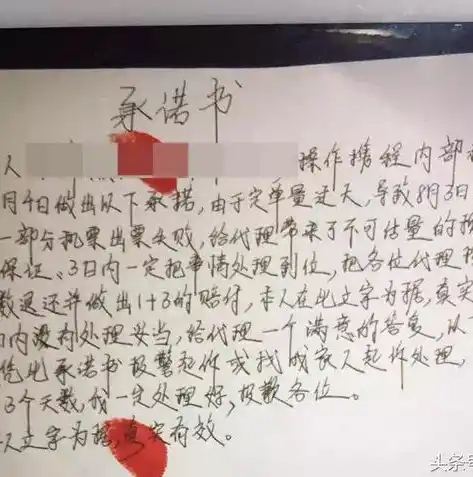 承诺书
人 操作携程内部
月4日做出以下承诺,由于定单量过大,导致8月3日
一部分机票出票失败,给代理带来了不可估量的
保证、3日内一定把事情处理到位,把各位代理
数退还并做出1+3的赔付,本人在此立字为据,真实
内没有处理妥当,给代理一个满意的答复,从
凭此承诺书报警起诉或找我家人起诉处理,
3个天数,我一定处理好,抱歉各位。
立字为据,真实有效。
头条号